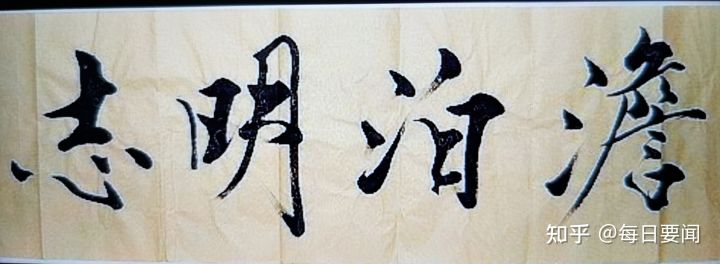 澹泊明志
知乎 @每日要闻